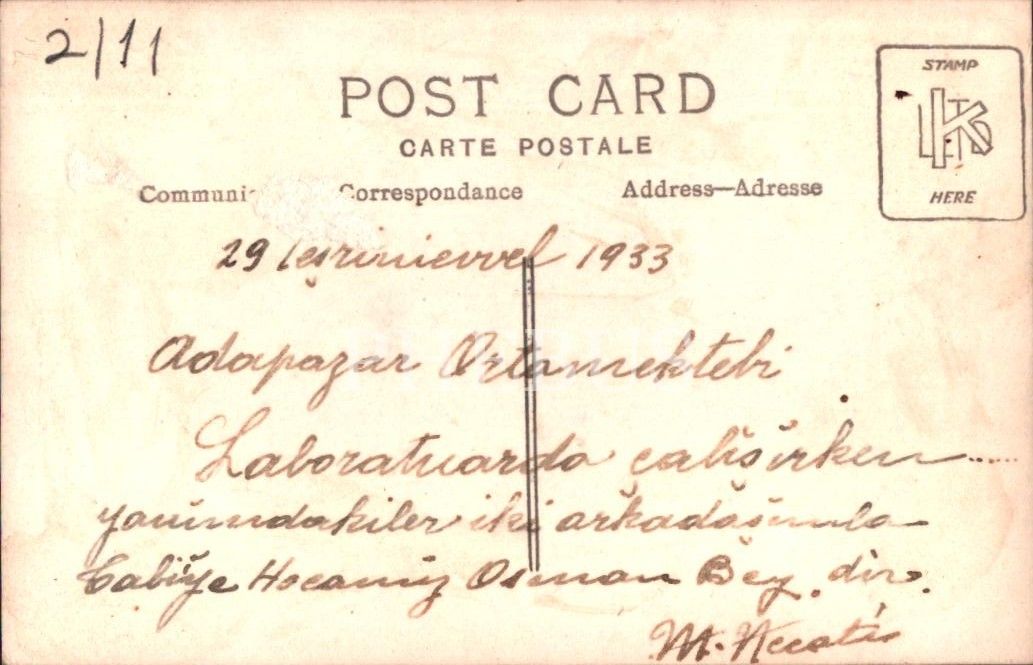 2/11
POST CARD
CARTE POSTALE
STAMP
HERE
Communi Correspondance Address—Adresse
29 Teşrinievvel 1933
Adapazar Ortamektebi
Laboratuarda çalışırken.....
yanımdakiler iki arkadaşımla
Tabiîye Hocamız Osman Bey dir.
M. Necati